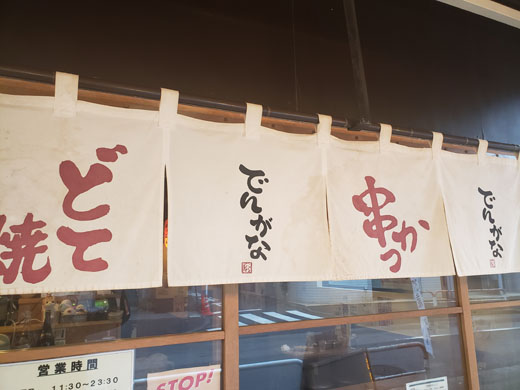 どて
焼
でんがな
串かつ
でんがな
営業時間
11:30~23:30
STOP!